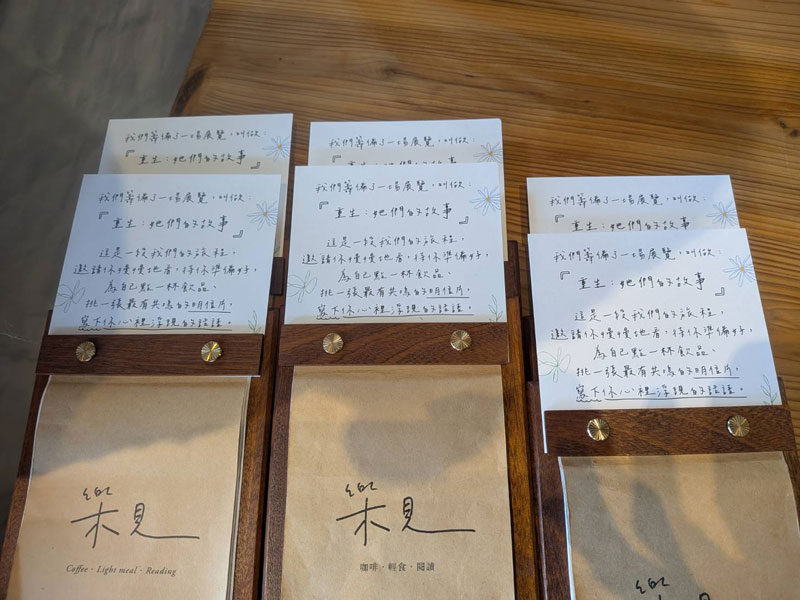 我們籌備了一場展覽，叫做：
『重生：她們的故事』
我們籌備了一場展覽，叫做：
『重生：她們的故事』
這是一段我們的旅程，
邀請你慢慢地看，待你準備好，
為自己點一杯飲品、
挑一張最有共鳴的明信片，
寫下你心裡浮現的話語。
樂見
Coffee · Light meal · Reading
我們籌備了一場展覽，叫做：
我們籌備了一場展覽，叫做：
『重生：她們的故事』
這是一段我們的旅程，
邀請你慢慢地看，待你準備好，
為自己點一杯飲品、
挑一張最有共鳴的明信片，
寫下你心裡浮現的話語。
樂見
咖啡·輕食·閱讀
我們籌備了一場展覽，叫做：
『重生：她們的故事』
我們籌備了一場展覽，叫做：
『重生：她們的故事』
這是一段我們的旅程，
邀請你慢慢地看，待你準備好，
為自己點一杯飲品、
挑一張最有共鳴的明信片，
寫下你心裡浮現的話語。
樂